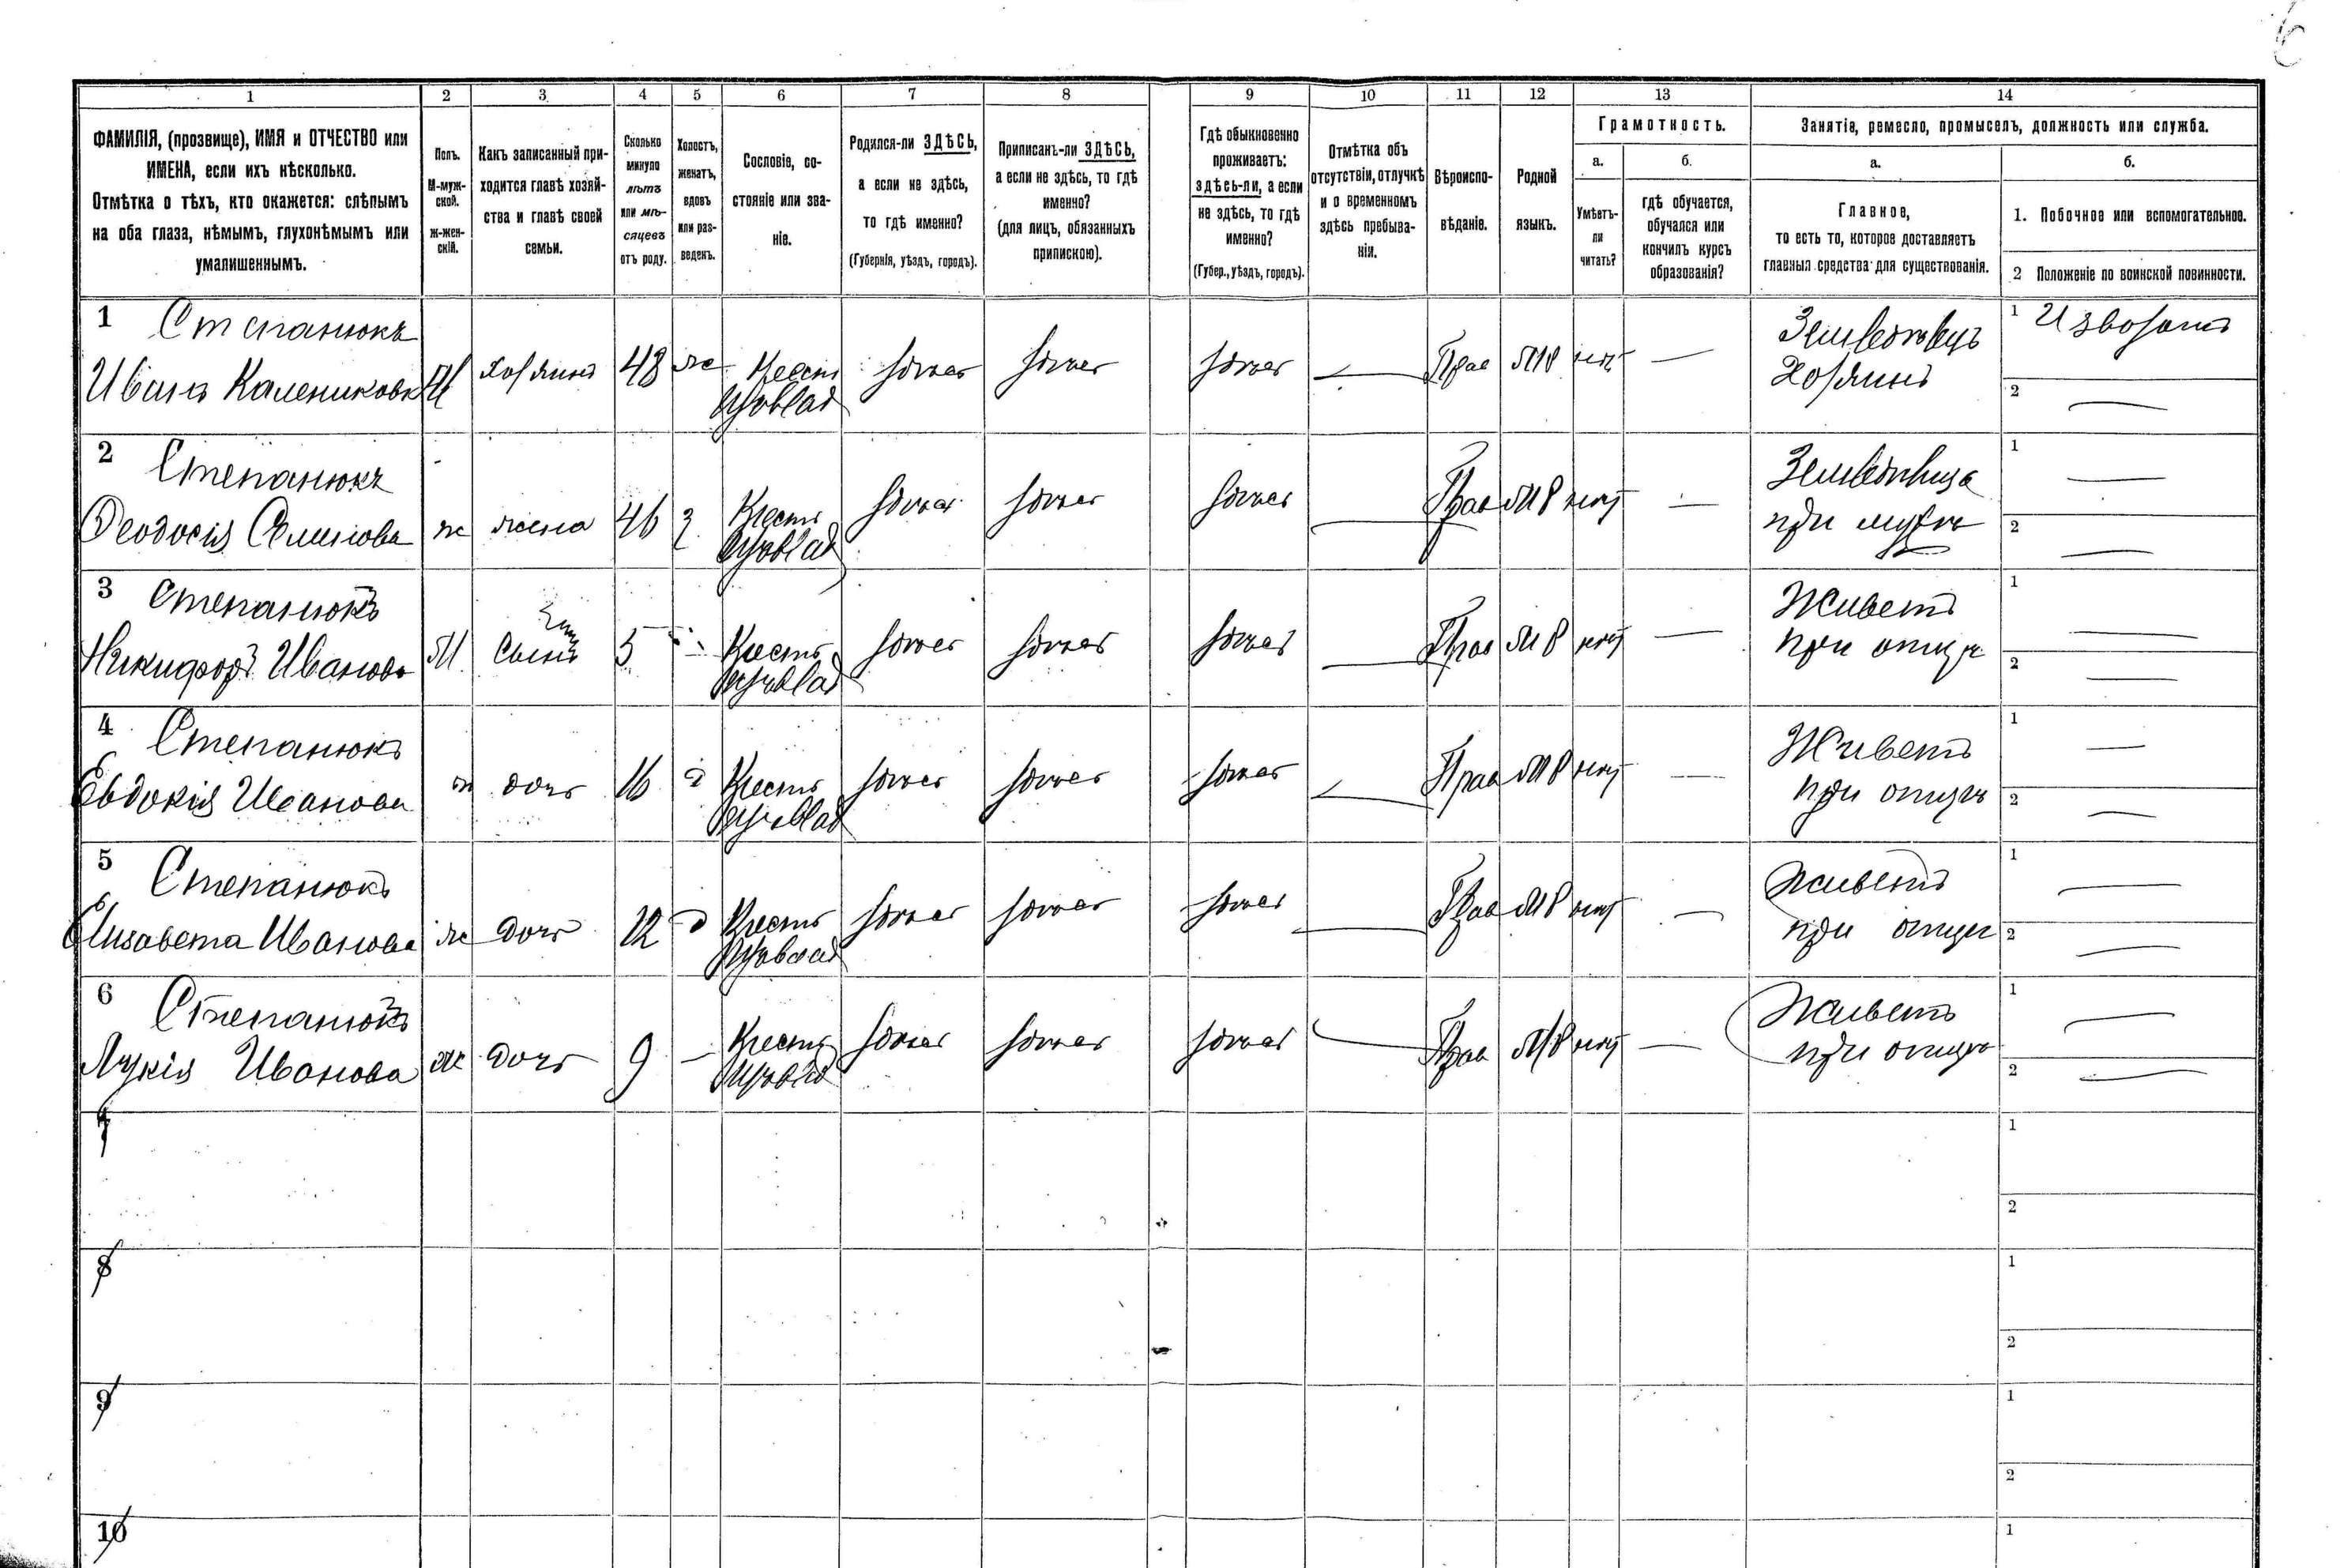 1 2 3 4 5 6 7 8 9 10 11 12 13 14
ФАМИЛІЯ, (прозвище), ИМЯ и ОТЧЕСТВО или
ИМЕНА, если ихъ нѣсколько.
Отмѣтка о тѣхъ, кто окажется: слѣпымъ
на оба глаза, нѣмымъ, глухонѣмымъ или
умалишеннымъ.
Полъ.
М-муж-
ской.
Ж-жен-
скій.
Какъ записанный при-
ходится главѣ хозяй-
ства и главѣ своей
семьи.
Сколько
минуло
лѣтъ
или мѣ-
сяцевъ
отъ роду.
Холостъ,
женатъ,
вдовъ
или раз-
веденъ.
Сословіе, со-
стояніе или зва-
ніе.
Родился-ли ЗДѢСЬ,
а если не здѣсь,
то гдѣ именно?
(Губернія, уѣздъ, городъ).
Приписанъ-ли ЗДѢСЬ,
а если не здѣсь, то гдѣ
именно?
(для лицъ, обязанныхъ
припискою).
Гдѣ обыкновенно
проживаетъ:
здѣсь-ли, а если
не здѣсь, то гдѣ
именно?
(Губер., уѣздъ, городъ).
Отмѣтка объ
отсутствіи, отлучкѣ
и о временномъ
здѣсь пребыва-
ніи.
Вѣроиспо-
вѣданіе.
Родной
языкъ.
Грамотность.
а.
Умѣетъ-
ли
читать?
б.
гдѣ обучается,
обучался или
кончилъ курсъ
образованія?
Занятіе, ремесло, промыселъ, должность или служба.
а.
Главное,
то есть то, которое доставляетъ
главныя средства для существованія.
б.
1. Побочное или вспомогательное.
2 Положеніе по воинской повинности.
1 Степанюкъ
Иванъ Калениковъ М хозяинъ 48 ж Крест здѣсь здѣсь здѣсь — Прав МР нѣт — Земледѣлецъ
Хозяинъ
1 Извозомъ
2 —
2 Степанюкъ
Феодосія ж жена 46 з Крест здѣсь здѣсь здѣсь — Прав МР нѣт — Земледѣлица
при мужѣ
1 —
2 —
3 Степанюкъ
Никифоръ Ивановъ М Сынъ 5 Крест здѣсь здѣсь здѣсь — Прав МР нѣт — Живетъ
при отцѣ
1 —
2 —
4 Степанюкъ
Евдокія Иванова ж дочь 16 д Крест здѣсь здѣсь здѣсь — Прав МР нѣт — Живетъ
при отцѣ
1 —
2 —
5 Степанюкъ
Елизавета Иванова ж дочь 12 д Крест здѣсь здѣсь здѣсь — Прав МР нѣт — живетъ
при отцѣ
1 —
2 —
6 Степанюкъ
Лукія Иванова ж дочь 9 — Крест здѣсь здѣсь здѣсь — Прав МР нѣт — Живетъ
при отцѣ
1 —
2 —
7
1
2
8
1
2
9
1
2
10
1